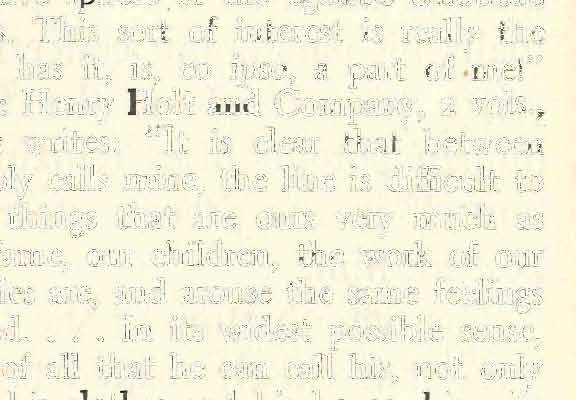 . This sort of interest is really the
has it, is, eo ipso, a part of me!”
Henry Holt and Company, 2 vols.,
writes: “It is clear that between
ply calls mine, the line is difficult to
things that are ours very much as
fame, our children, the work of our
ies are, and arouse the same feelings
ed. . . . In its widest possible sense,
of all that he can call his, not only